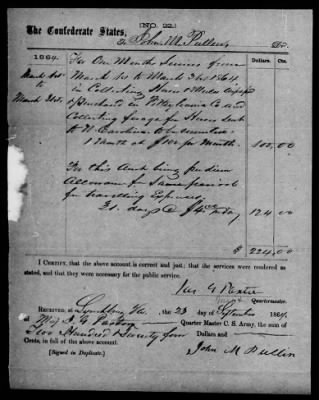 [NO. 22.]
The Confederate States,
To John M Pullin, Dr.
1864. Dollars. Cts.
March 1st to March 31st.
For One Months Services from
March 1st to March 31st 1864
in Collecting Horses & Mules
purchased in Pittsylvania Co and
Collecting forage for Horses sent
to N Carolina to be
1 Month at $100 per Month. 100,00
For this Amt being per diem
Allowance for Same period
for travelling Expenses
31 days @ $4 00 day 124 00
$ 224.00
I CERTIFY, that the above account is correct and just; that the services were rendered as
stated, and that they were necessary for the public service.
Jas G Paxton
Maj & Quartermaster.
RECEIVED, at Lynchburg Va. the 23 day of September 1864,
of Maj J G Paxton Quarter Master C. S. Army, the sum of
Two Hundred & Twenty four Dollars and
Cents, in full of the above account.
[Signed in Duplicate.] John M Pullin